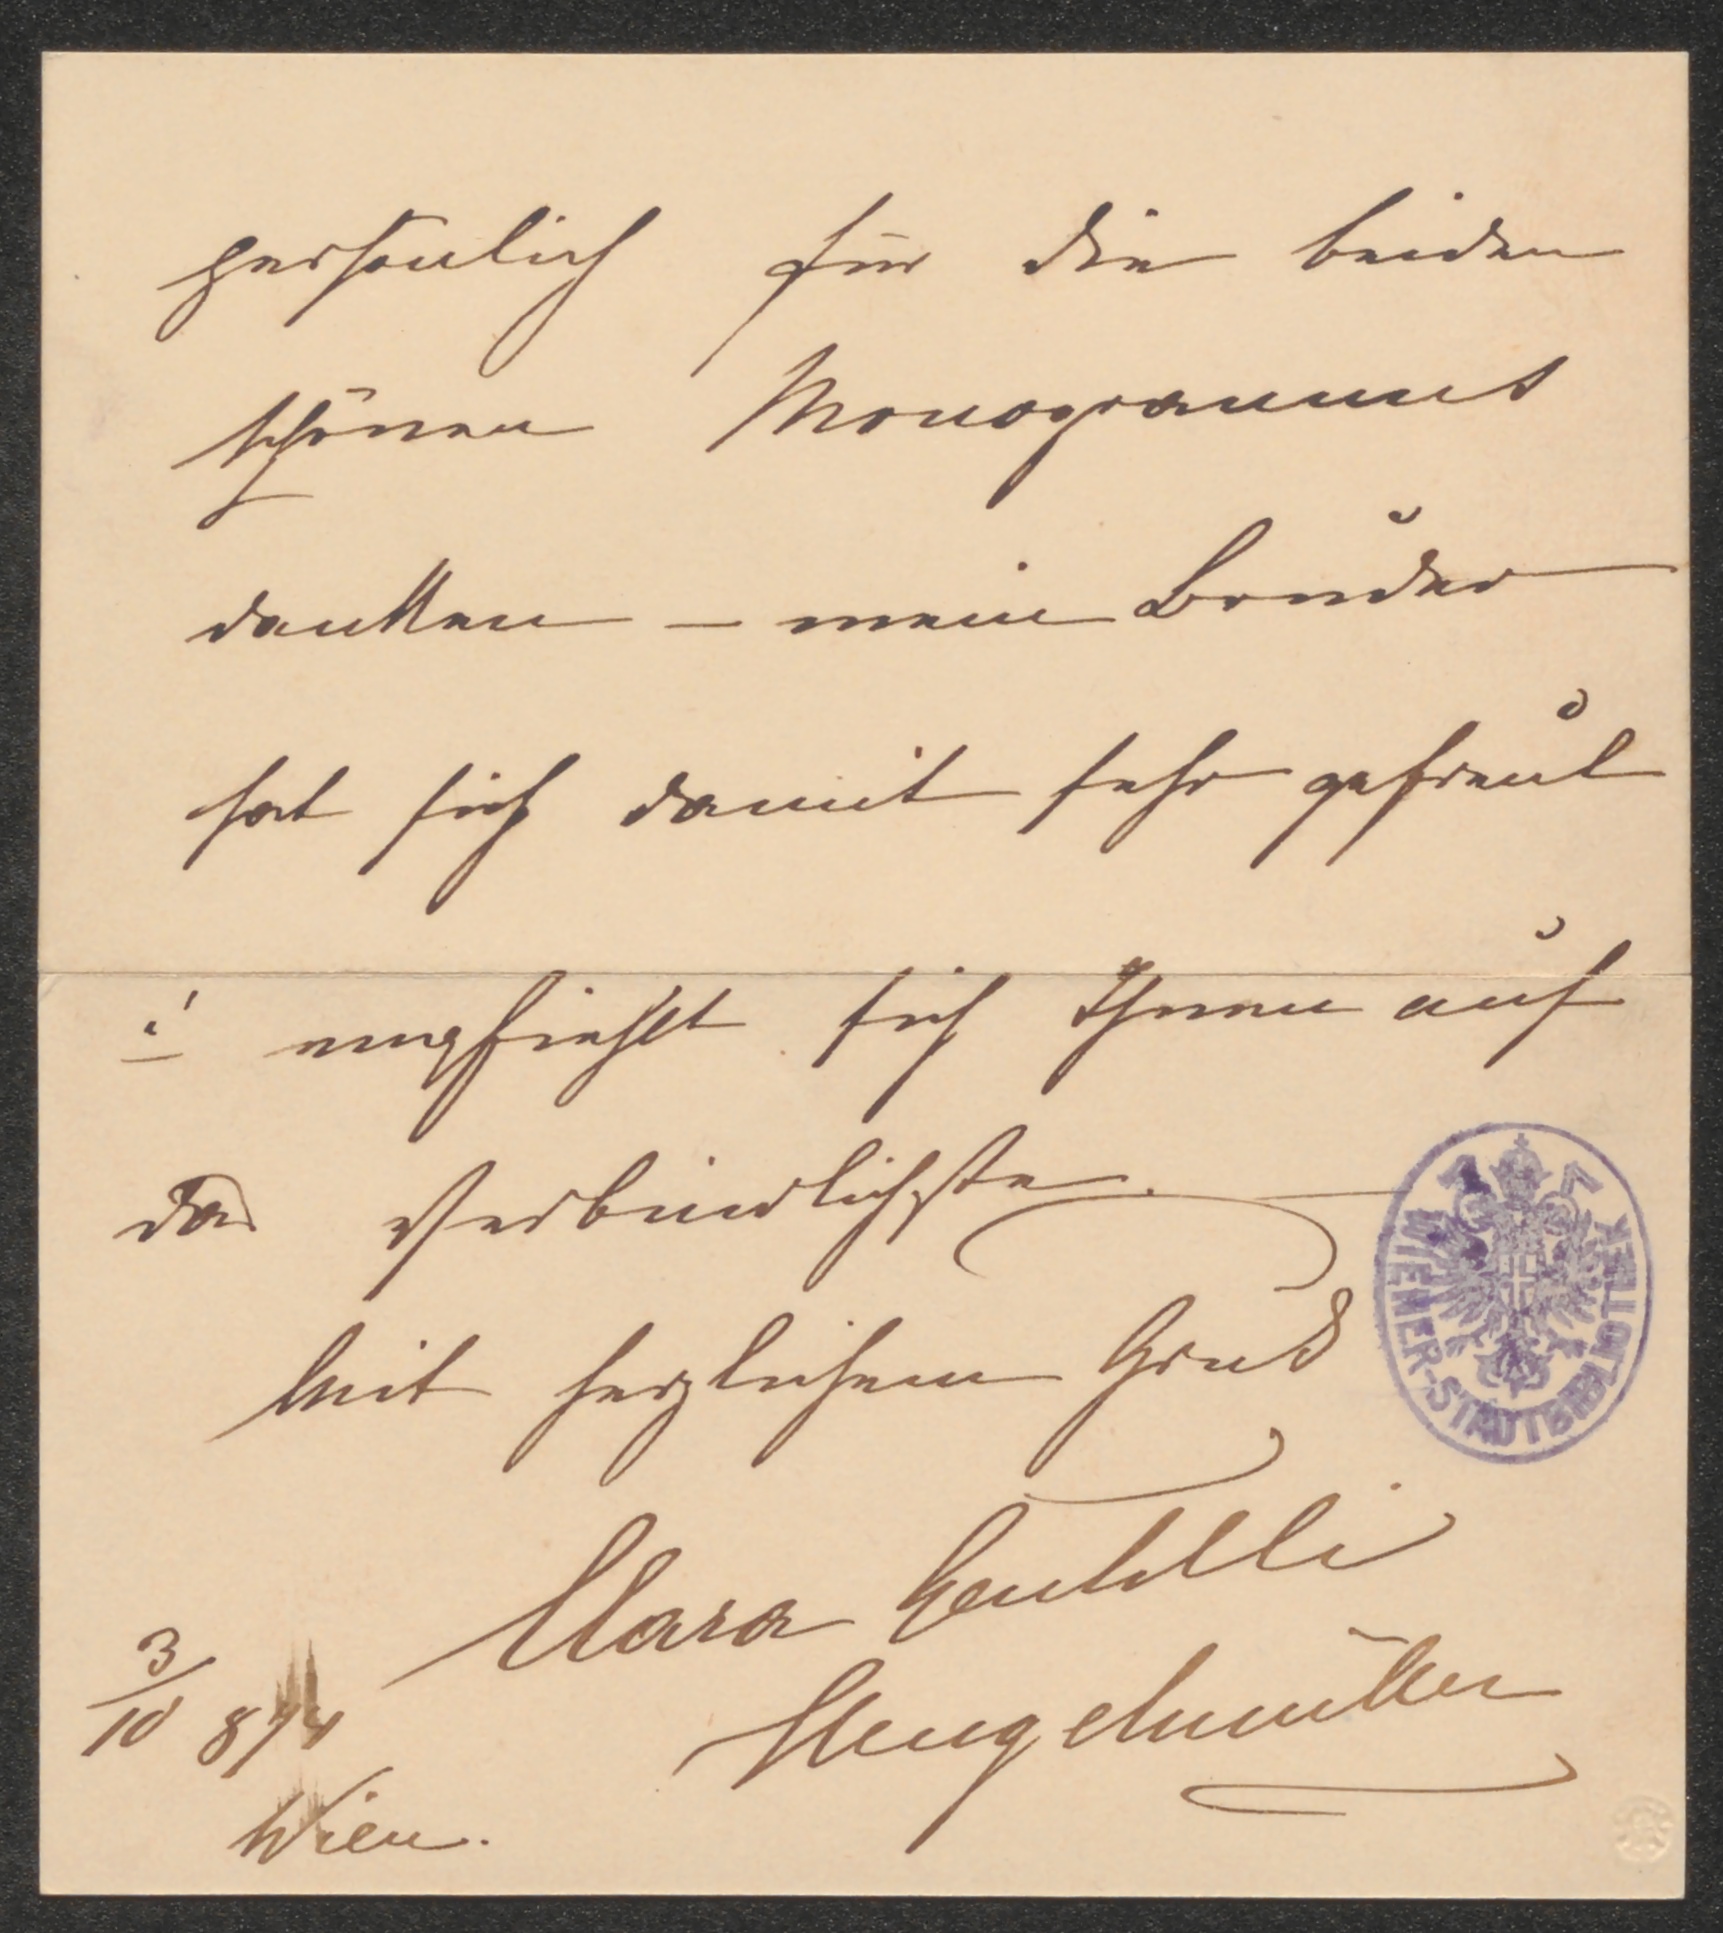 persönlich für die beiden
schönen Monogramms
danken – mein Bruder
hat sich damit sehr gefreut
u empfiehlt sich Ihnen auf
das Verbindlichste.
Mit herzlichem Gruß
Clara
Hengelmüller
3/10 874
Wien.
WIENER-STADTBIBLIOTHEK